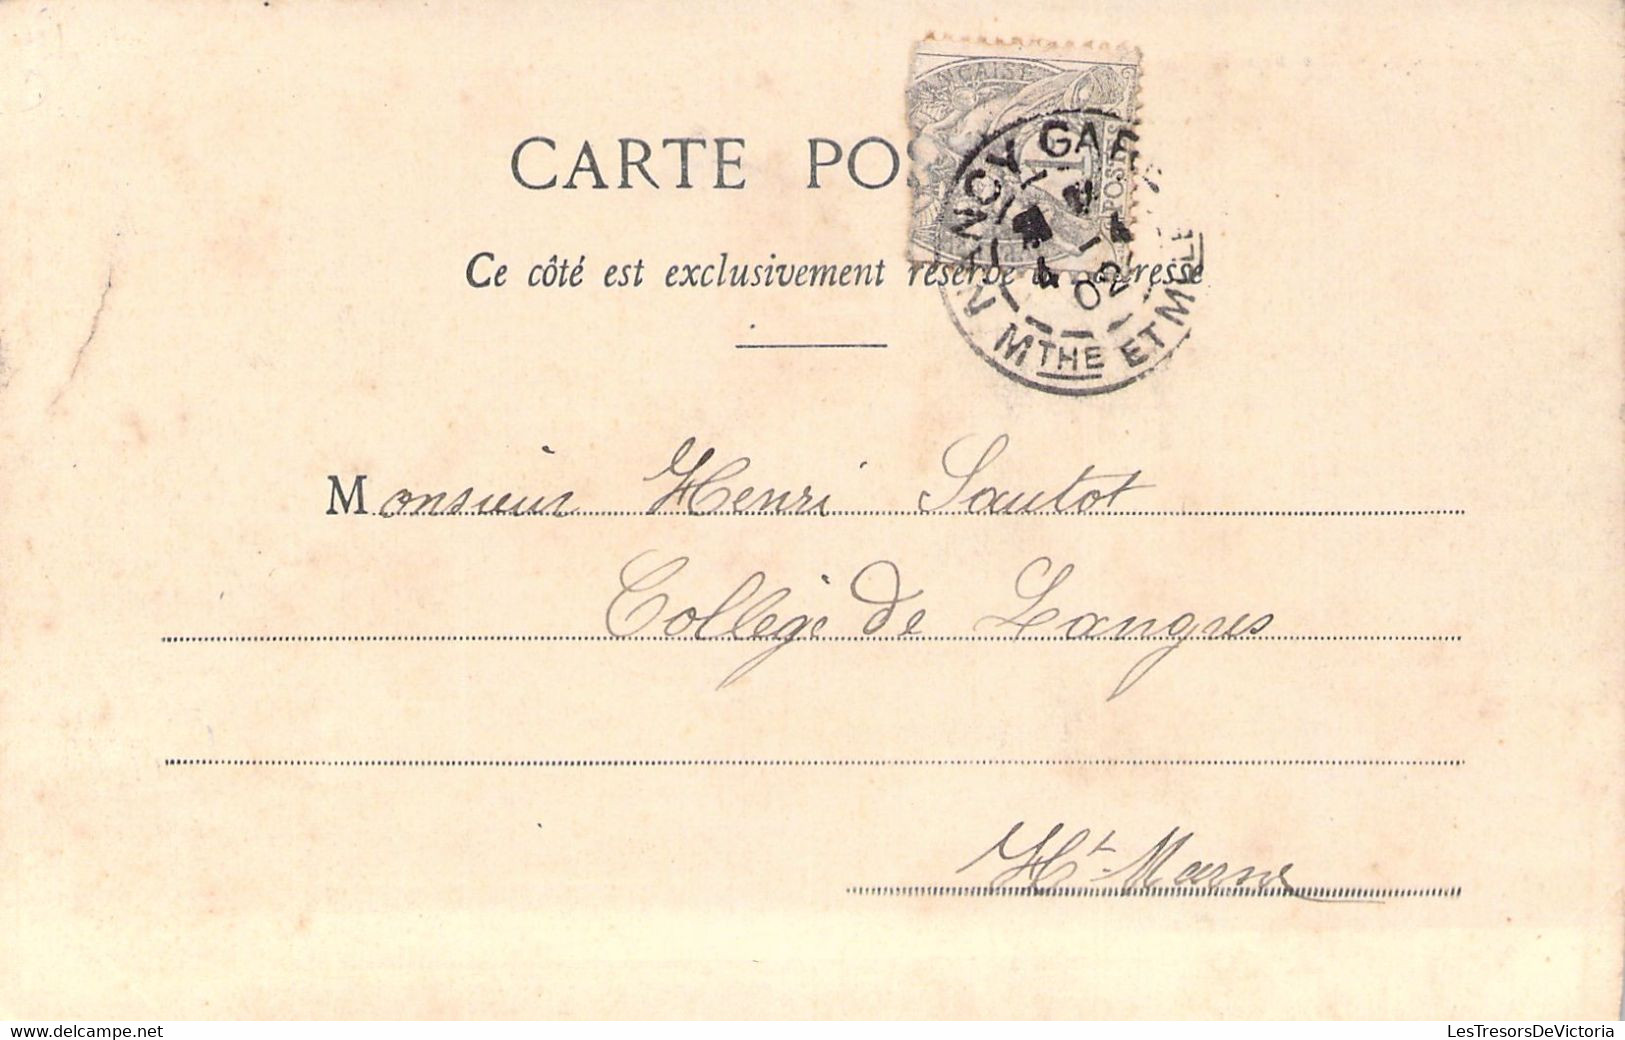 CARTE POS
Ce côté est exclusivement réservé à l'adresse
ANÇAISE
POSTES
NANCY GARE
MTHE ET MLLE
02
Monsieur Henri Sautot
Collège de Langres
Hte Marne
delcampe.net
LesTresorsDeVictoria